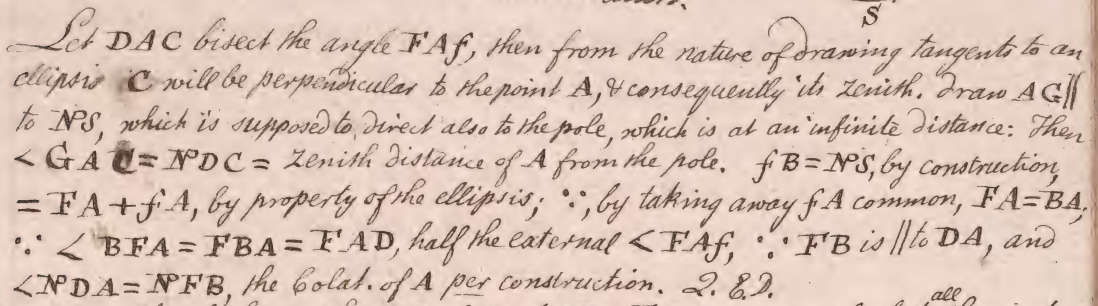 S
Let DAC bisect the angle FAf, then from the nature of drawing tangents to an
ellipsis C will be perpendicular to the point A, & consequently its zenith. draw AG||
to NS, which is supposed to direct also to the pole, which is at an infinite distance: Then
<GAC = NDC = Zenith distance of A from the pole. fB = NS, by construction,
= FA + fA, by property of the ellipsis; ∵, by taking away fA common, FA = BA;
∵ < BFA = FBA = FAD, half the external < FAf, ∵ FB is || to DA, and
<NDA = NFB, the Colat. of A per construction. Q.E.D.
all